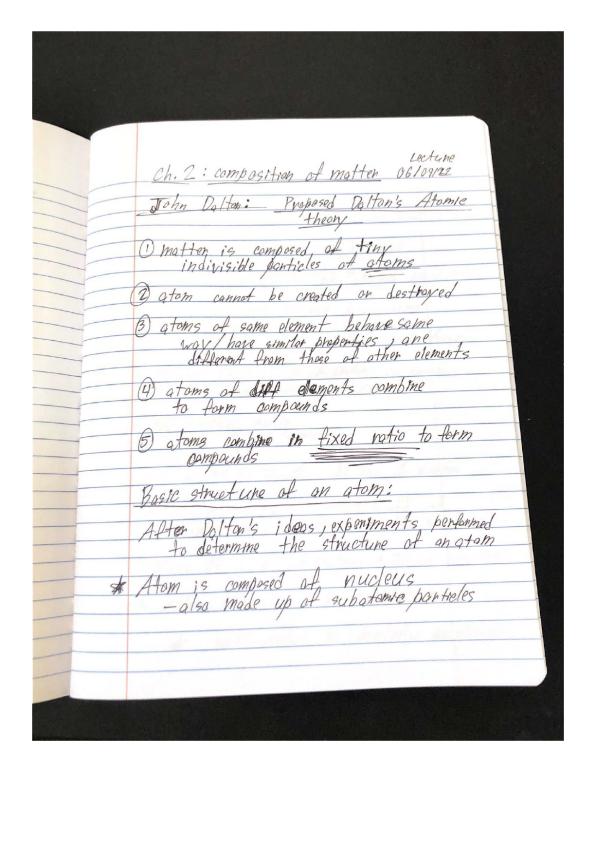 Lecture
Ch. 2: composition of matter 06/09/22
John Dalton: Proposed Dalton's Atomic
theory
① matter is composed of tiny
indivisible particles of atoms
② atom cannot be created or destroyed
③ atoms of same element behave same
way/have similar properties, are
different from those of other elements
④ atoms of diff elements combine
to form compounds
⑤ atoms combine in fixed ratio to form
compounds
Basic structure of an atom:
After Dalton's ideas, experiments performed
to determine the structure of an atom
* Atom is composed of nucleus
- also made up of subatomic particles